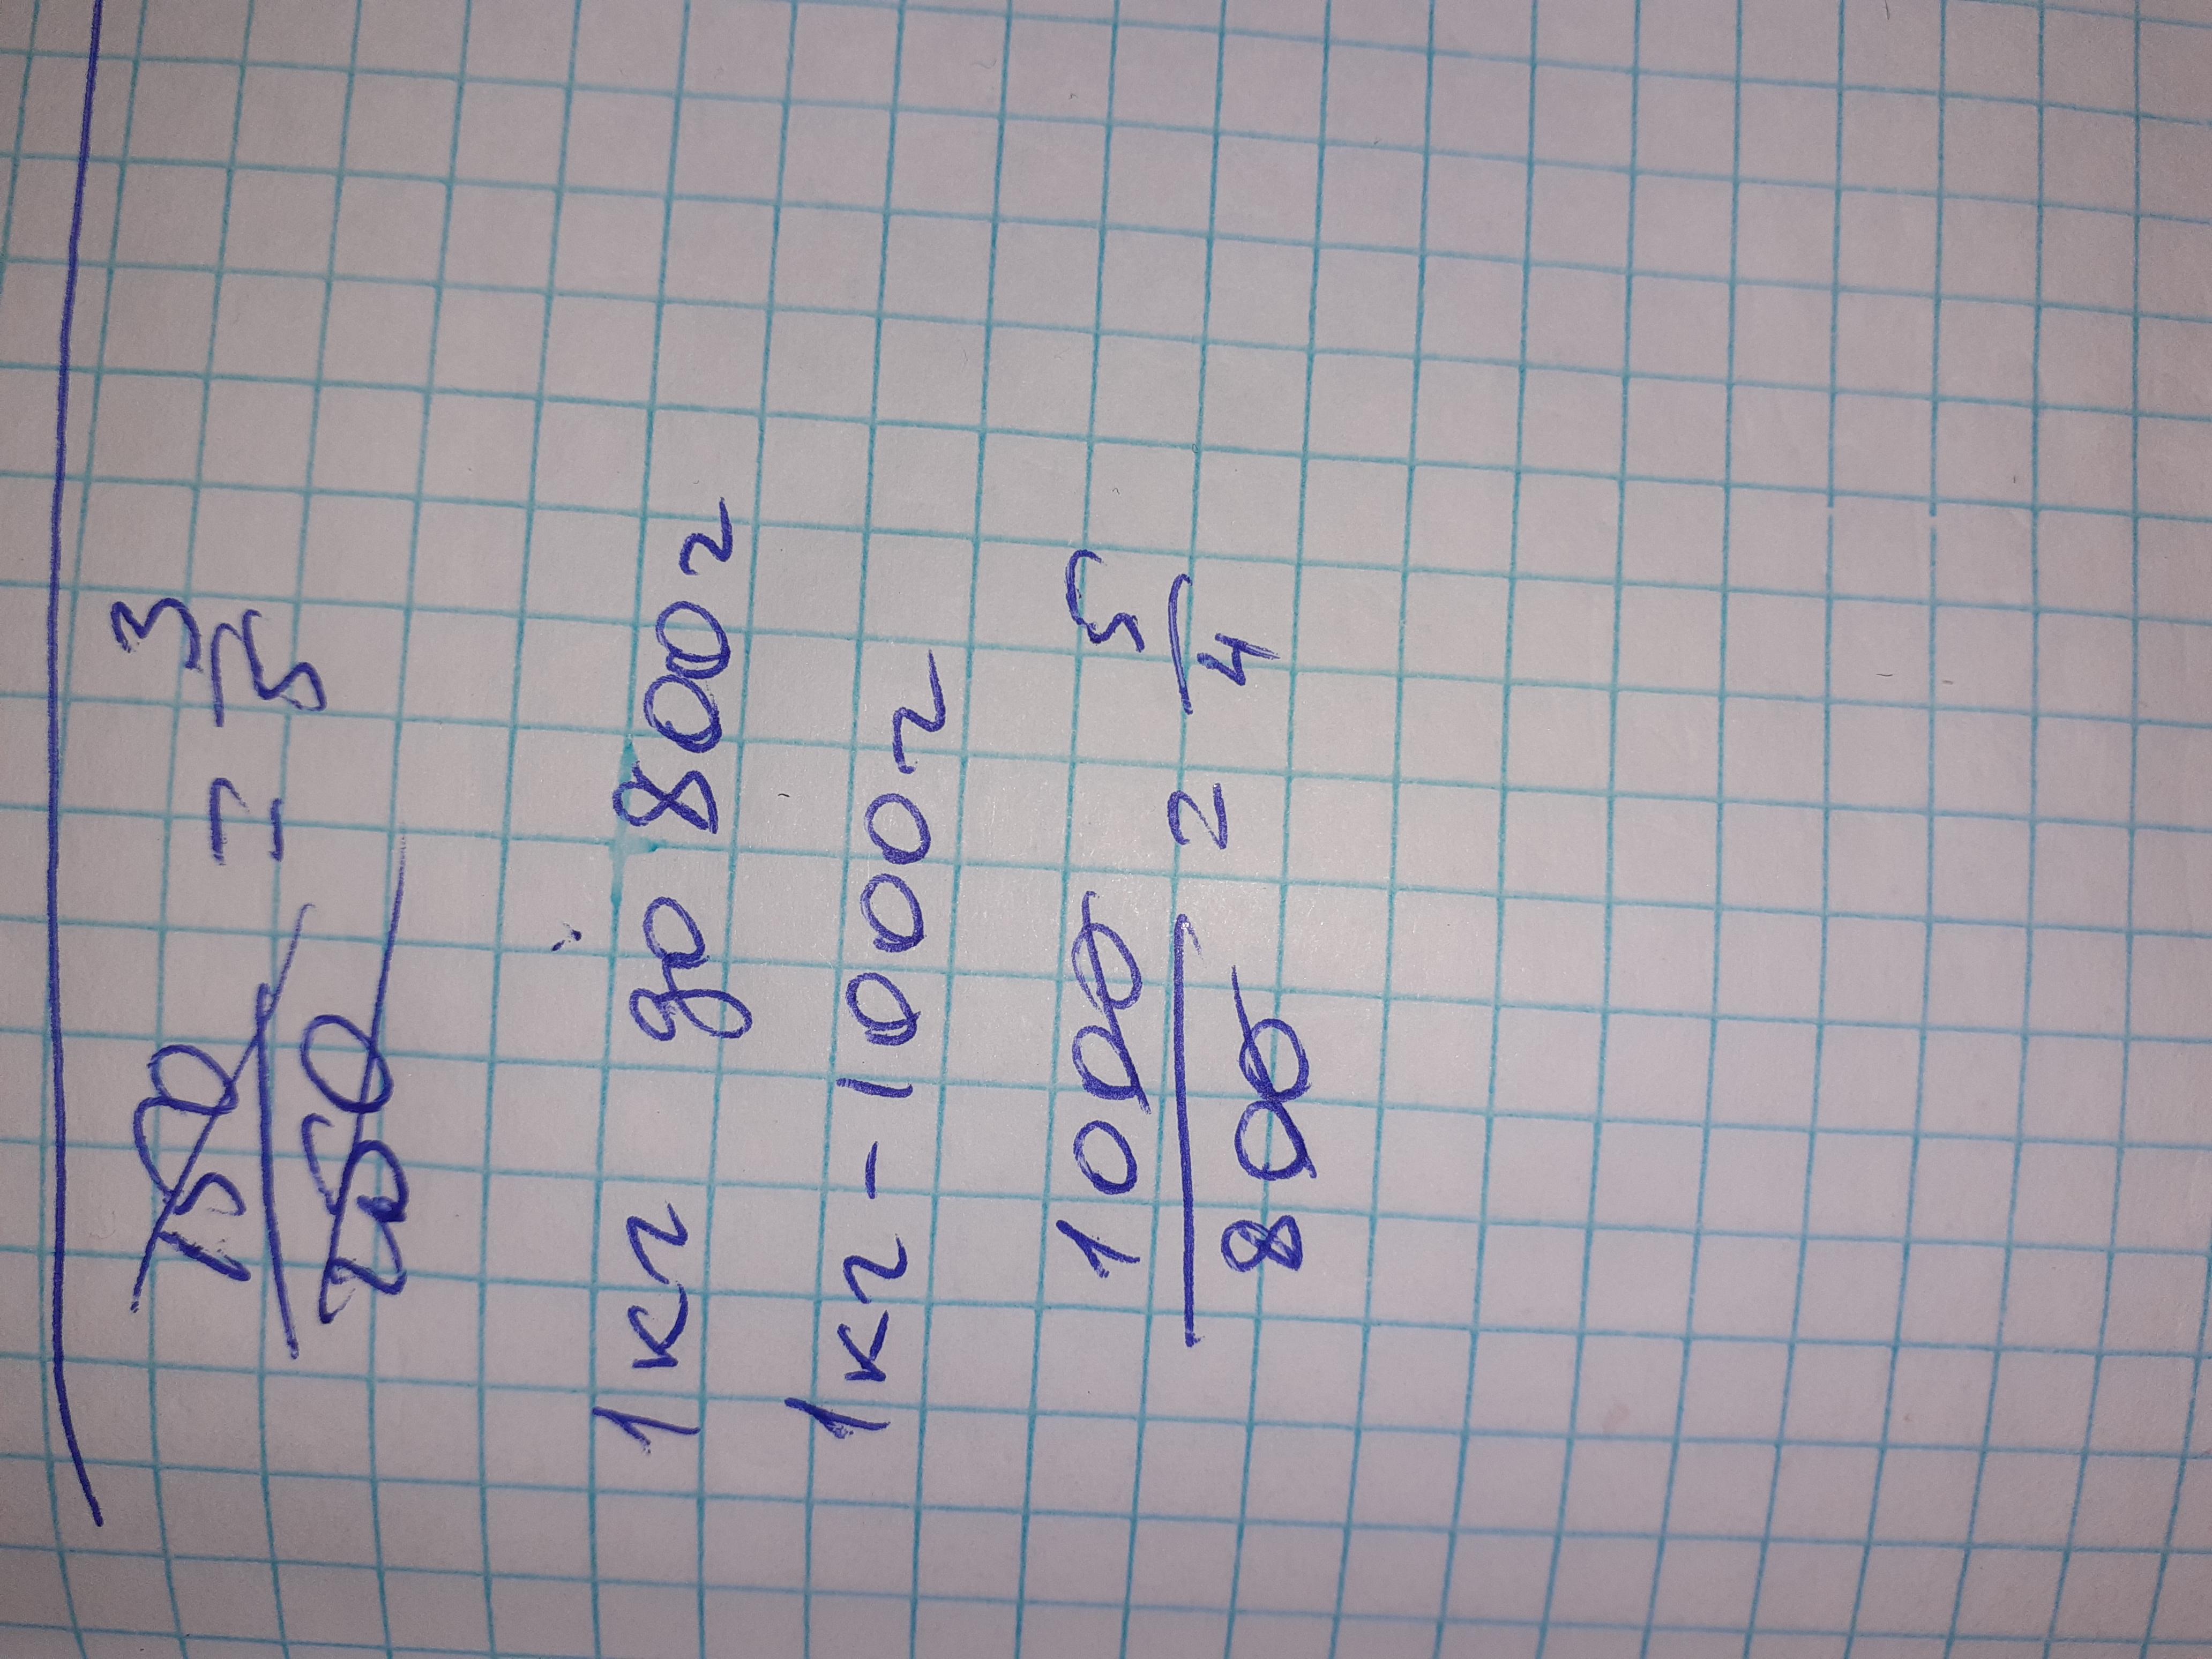 150/250 = 3/5
1кг до 800г
1кг - 1000г
1000/800 = 5/4